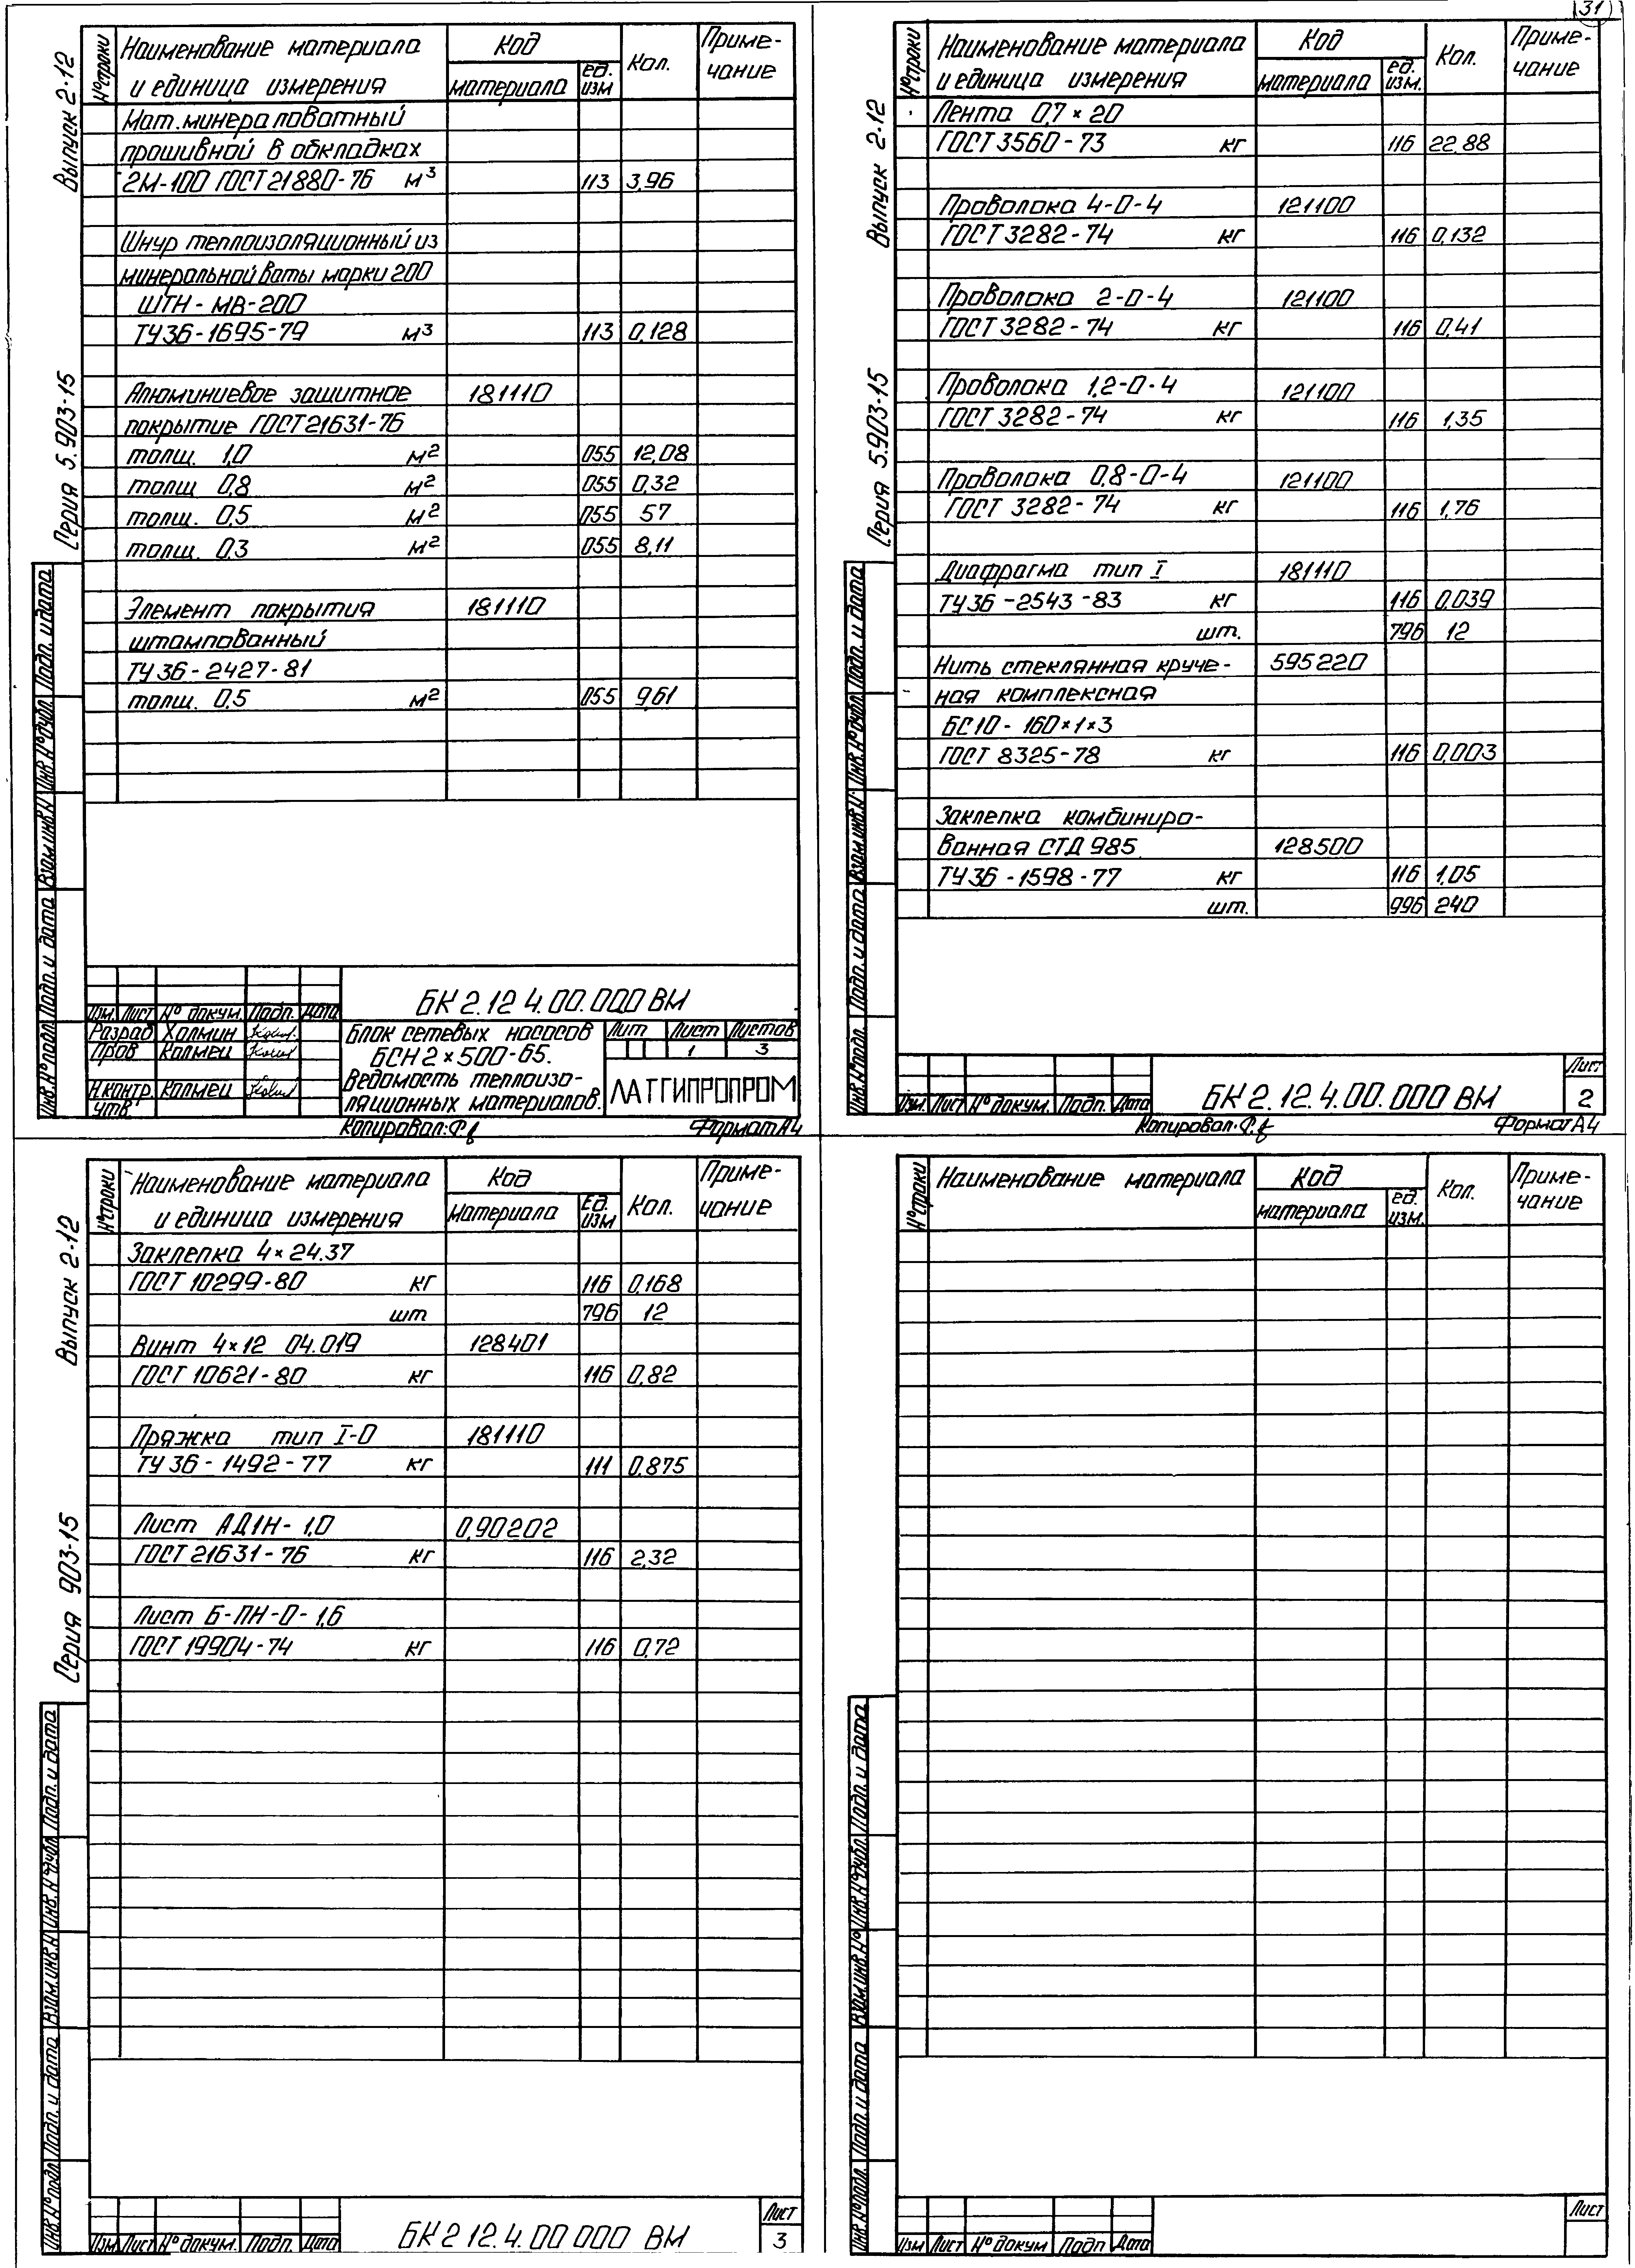 31
Выпуск 2-12
Серия 5.903-15
№ строки
Наименование материала
и единица измерения
Код
материала
ед. изм
Кол.
Примечание
Мат. минераловатный
прошивной в обкладках
2М-100 ГОСТ 21880-76 м³ 113 3,96
Шнур теплоизоляционный из
минеральной ваты марки 200
ШТН-МВ-200
ТУ 36-1695-79 м³ 113 0,128
Алюминиевое защитное 181110
покрытие ГОСТ 21631-76
толщ. 1,0 м² 055 12,08
толщ 0,8 м² 055 0,32
толщ. 0,5 м² 055 57
толщ. 0,3 м² 055 8,11
Элемент покрытия 181110
штампованный
ТУ 36-2427-81
толщ. 0,5 м² 055 9,61
Подп. и дата
Инв. № дубл.
Взам. инв. №
Подп. и дата
Инв. № подл.
БК 2.12 4.00.000 ВМ
Изм. Лист № докум. Подп. Дата
Разраб Холмин
Пров Колмец
Н.контр. Колмец
Утв.
Блок сетевых насосов
БСН 2×500-65.
Ведомость теплоизо-
ляционных материалов.
Лит Лист Листов
1 3
ЛАТГИПРОПРОМ
Копировал:
Формат А4
Выпуск 2-12
Серия 5.903-15
№ строки
Наименование материала
и единица измерения
Код
материала
ед. изм.
Кол.
Приме-
чание
Лента 0,7×20
ГОСТ 3560-73 кг 116 22.88
Проволока 4-О-4 121100
ГОСТ 3282-74 кг 116 0,132
Проволока 2-О-4 121100
ГОСТ 3282-74 кг 116 0,41
Проволока 1,2-О-4 121100
ГОСТ 3282-74 кг 116 1,35
Проволока 0,8-О-4 121100
ГОСТ 3282-74 кг 116 1,76
Диафрагма тип I 181110
ТУ 36-2543-83 кг 116 0,039
шт. 796 12
Нить стеклянная круче- 595220
ная комплексная
БС10-160×1×3
ГОСТ 8325-78 кг 116 0,003
Заклепка комбиниро-
ванная СТД 985 128500
ТУ 36-1598-77 кг 116 1,05
шт. 996 240
Подп. и дата
Инв. № дубл.
Взам. инв. №
Подп. и дата
Инв. № подл.
Изм. Лист № докум. Подп. Дата
БК 2.12.4.00.000 ВМ
Лист
2
Копировал:
Формат А4
Выпуск 2-12
Серия 903-15
№ строки
Наименование материала
и единица измерения
Код
материала
Ед. изм
Кол.
Приме-
чание
Заклепка 4×24.37
ГОСТ 10299-80 кг 116 0,168
шт 796 12
Винт 4×12 04.019 128401
ГОСТ 10621-80 кг 116 0,82
Пряжка тип I-О 181110
ТУ 36-1492-77 кг 111 0,875
Лист АД1Н-1,0 0,90202
ГОСТ 21631-76 кг 116 2,32
Лист Б-ПН-О-1,6
ГОСТ 19904-74 кг 116 0,72
Подп. и дата
Инв. № дубл.
Взам. инв. №
Подп. и дата
Инв. № подл
Изм Лист № докум. Подп. Дата
БК 2 12.4.00 000 ВМ
Лист
3
№ строки
Наименование материала
Код
материала
ед. изм.
Кол.
Приме-
чание
Подп. и дата
Инв. № дубл.
Взам. инв. №
Подп. и дата
Инв. № подл.
Изм Лист № докум Подп Дата
Лист